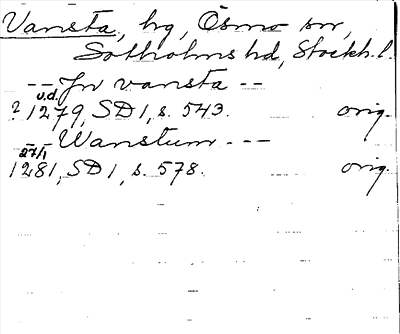 Vansta, hg, Ösmo sn,
Sotholms hd, Stockh. l.
-- Jn vansta --
u.d.
? 1279, SD 1, s. 543. orig.
-- Wanstum ---
27/1
1281, SD 1, s. 578. orig.